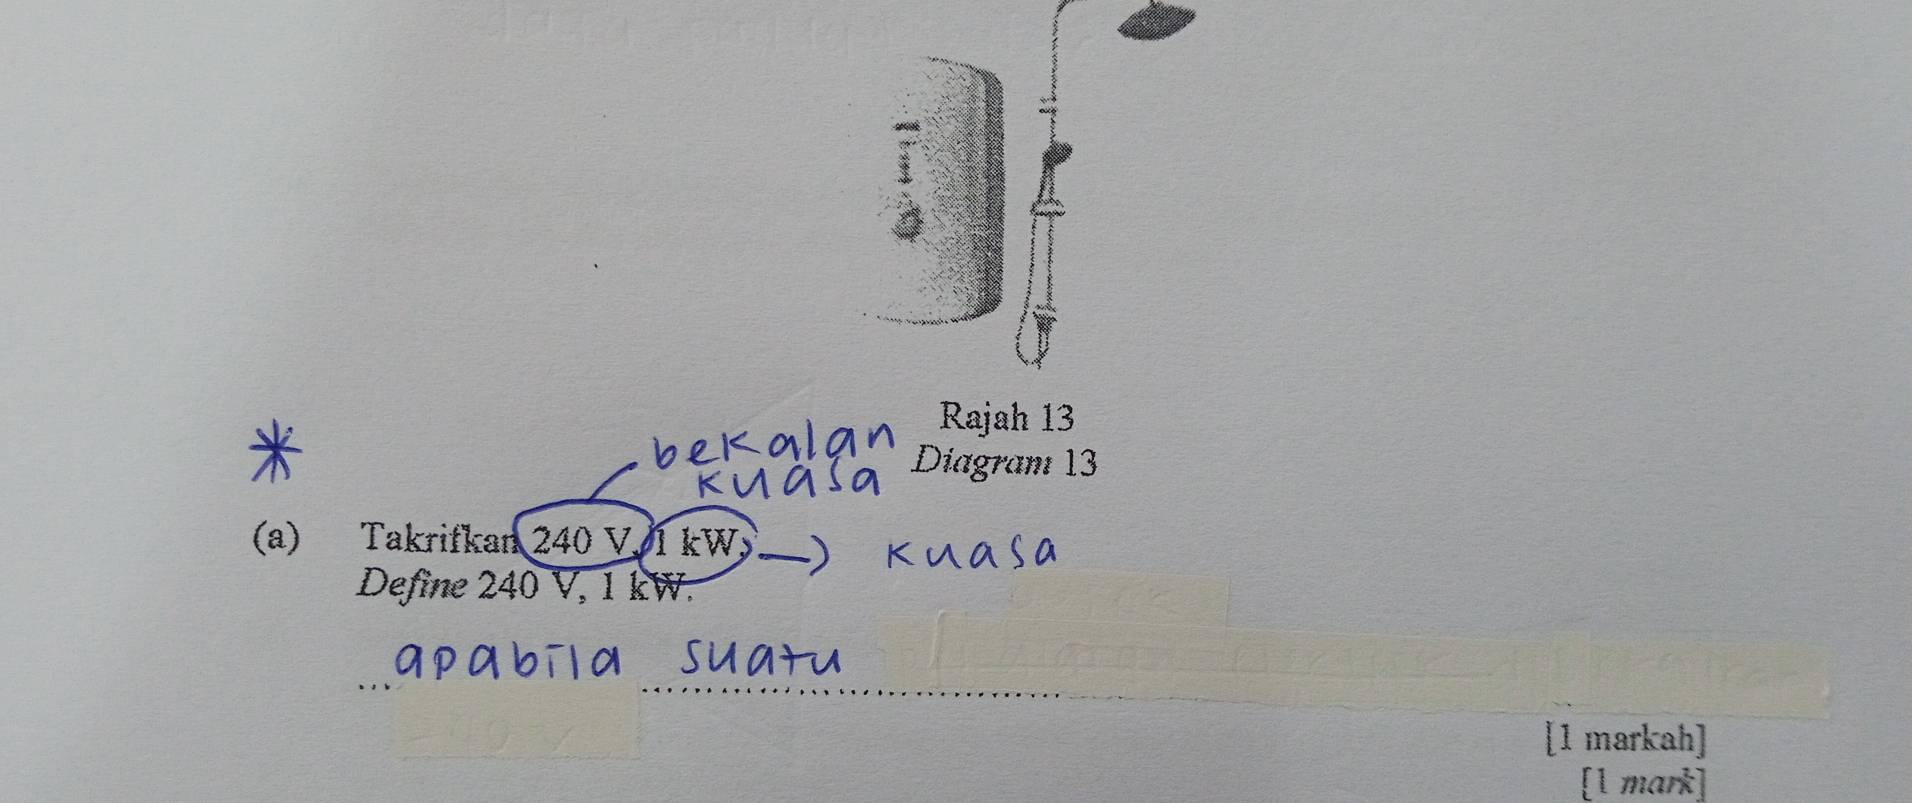 Rajah 13
Diagram 13
bekalan
kuasa
(a) Takrifkan 240 V, 1 kW. → kuasa
Define 240 V, 1 kW.
apabila suatu
[1 markah]
[1 mark]